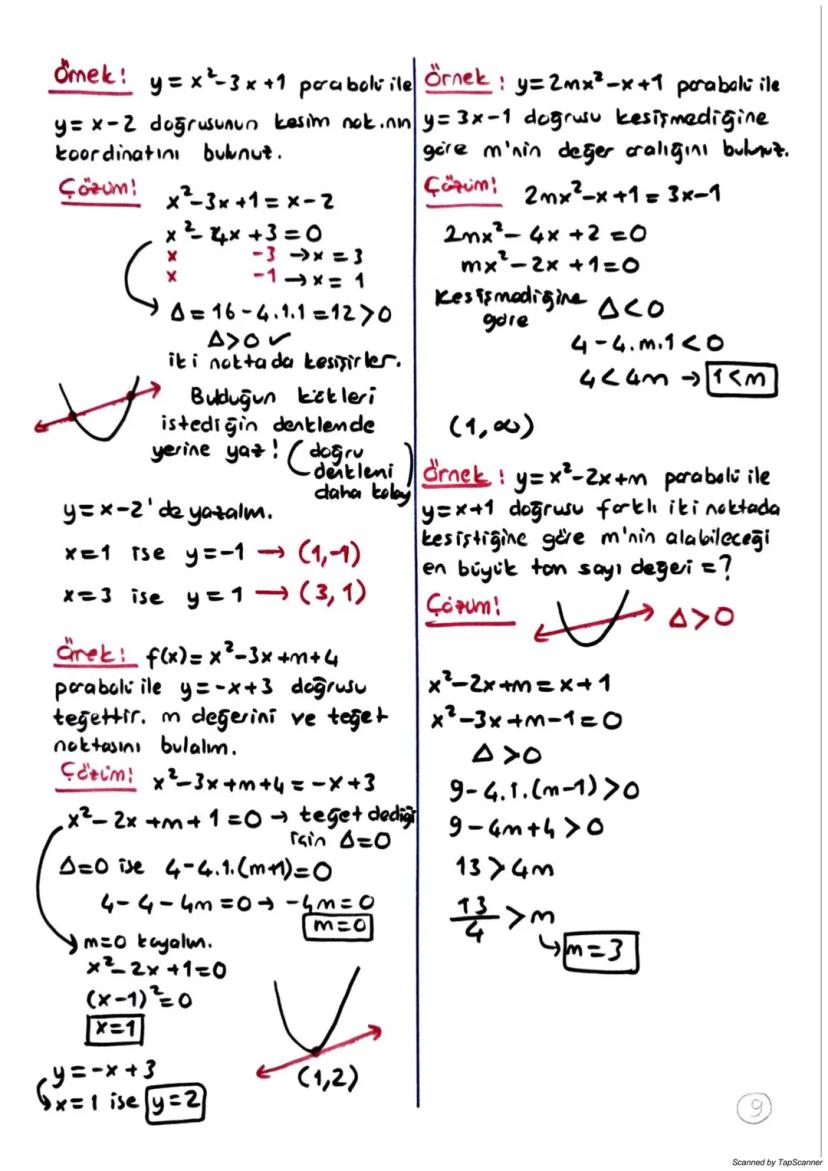 Örnek: y = x²-3x+1 parabolü ile
y = x-2 doğrusunun kesim nok.nın
koordinatını bulunuz.
Çözüm:
x²-3x+1 = x-2
x²-4x+3=0
x -3 → x = 3
x -1 → x = 1
Δ = 16-4.1.1 = 12 > 0
Δ>0 ✓
iki noktada kesişirler.
Bulduğun kökleri
istediğin denklemde
yerine yaz! (doğru
denklemi
daha kolay)
y=x-2'de yazalım.
x=1 ise y=-1 → (1,-1)
x=3 ise y=1 → (3,1)
Örnek: f(x)=x²-3x+m+4
parabolü ile y=-x+3 doğrusu
teğettir. m değerini ve teğet
noktasını bulalım.
Çözüm: x²-3x+m+4 = -x+3
x²-2x+m+1=0 → teğet dediği
için Δ=0
Δ=0 ise 4-4.1.(m+1)=0
4-4-4m=0 → -4m=0
m=0
m=0 koyalım.
x²-2x+1=0
(x-1)²=0
x=1
(1,2)
y=-x+3
x=1 ise y=2
Örnek: y=2mx²-x+1 parabolü ile
y=3x-1 doğrusu kesişmediğine
göre m'nin değer aralığını bulunuz.
Çözüm: 2mx²-x+1 = 3x-1
2mx²-4x+2=0
mx²-2x+1=0
Kesişmediğine
göre Δ<0
4-4.m.1<0
4<4m → 1<m
(1,∞)
Örnek: y=x²-2x+m parabolü ile
y=x+1 doğrusu farklı iki noktada
kesiştiğine göre m'nin alabileceği
en büyük tam sayı değeri =?
Çözüm:
Δ>0
x²-2x+m=x+1
x²-3x+m-1=0
Δ>0
9-4.1.(m-1)>0
9-4m+4>0
13>4m
13/4 > m
m=3
9
Scanned by TapScanner